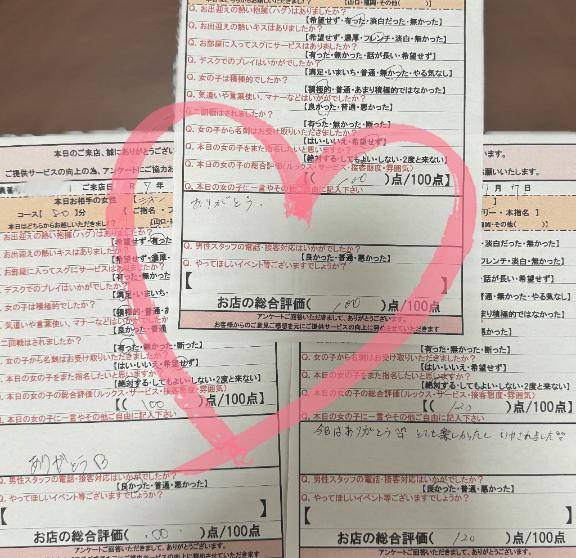 Q. お出迎えの熱い抱擁(ハグ)はありましたか?
【希望せず・有った・淡白だった・無かった】
Q. お出迎えの熱いキスはありましたか?
【希望せず・濃厚・フレンチ・淡白・無かった】
Q. お部屋に入ってスグにサービスはありましたか?
【有った・無かった・話が長い・希望せず】
Q. デスクでのプレイはいかがでしたか?
【満足・いまいち・普通・無かった・やる気なし】
Q. 女の子は積極的でしたか?
【積極的・普通・あまり積極的ではなかった】
Q. 気遣いや言葉使い、マナーなどはいかがでしたか?
【良かった・普通・悪かった】
Q. 二回戦はされましたか?
【有った・無かった・断った】
Q. 女の子から名刺はお受け取りいただきましたか?
【はい・いいえ・希望せず】
Q. 本日の女の子をまた指名したいと思いますか?
【絶対する・してもよい・しない・2度と来ない】
Q. 本日の女の子の総合評価(ルックス・サービス・接客態度・雰囲気)
【( 100 )点/100点】
Q. 本日の女の子に一言やその他ご自由に記入下さい
ありがとう。
Q. 男性スタッフの電話・接客対応はいかがでしたか?
【良かった・普通・悪かった】
Q. やってほしいイベント等ございますでしょうか?
【
お店の総合評価( 100 )点/100点
アンケートご回答いただきまして、ありがとうございます。
お客様からのご意見ご感想を元にご提供サービスの向上に努めさせていただきます
本日のご来店、誠にありがとうござい
ご提供サービスの向上の為、アンケートにご協力お
ご来店日 R 7年
本日お相手の女性
コース【 80 】分
本日はどちらからお越しいただきましたか?
Q. お出迎えの熱い抱擁(ハグ)はありましたか?
【希望せず・有った
Q. お出迎えの熱いキスはありましたか?
【希望せず・濃厚・
Q. お部屋に入ってスグにサービスはありましたか?
【有った・無か
Q. デスクでのプレイはいかがでしたか?
【満足・いまいち・
Q. 女の子は積極的でしたか?
【積極的・普通・あま
Q. 気遣いや言葉使い、マナーなどはいかが
【良かった・普通
Q. 二回戦はされましたか?
【有った・無かった・断った】
Q. 女の子から名刺はお受け取りいただきましたか?
【はい・いいえ・希望せず】
Q. 本日の女の子をまた指名したいと思いますか?
【絶対する・してもよい・しない・2度と来ない】
Q. 本日の女の子の総合評価(ルックス・サービス・接客態度・雰囲気)
【( 100 )点/100点】
Q. 本日の女の子に一言やその他ご自由に記入下さい
ありがとう
Q. 男性スタッフの電話・接客対応はいかがでしたか?
【良かった・普通・悪かった】
Q. やってほしいイベント等ございますでしょうか?
【 】
お店の総合評価( 100 )点/100点
アンケートご回答いただきまして、ありがとうございます。
ます。
願いします。
月 17日
リー・本指名】
・淡白だった・無かった】
フレンチ・淡白・無かった】
った・話が長い・希望せず】
普通・無かった・やる気なし】
まり積極的ではなかった】
・普通・悪かった】
【有った・無かった・断った】
Q. 女の子から名刺はお受け取りいただきましたか?
【はい・いいえ・希望せず】
Q. 本日の女の子をまた指名したいと思いますか?
【絶対する・してもよい・しない・2度と来ない】
Q. 本日の女の子の総合評価(ルックス・サービス・接客態度・雰囲気)
【( 120 )点/100点】
Q. 本日の女の子に一言やその他ご自由に記入下さい
今日はありがとう とても楽しかったし いやされました
Q. 男性スタッフの電話・接客対応はいかがでしたか?
【良かった・普通・悪かった】
Q. やってほしいイベント等ございますでしょうか?
【 】
お店の総合評価( 120 )点/100点
アンケートご回答いただきまして、ありがとうございます。